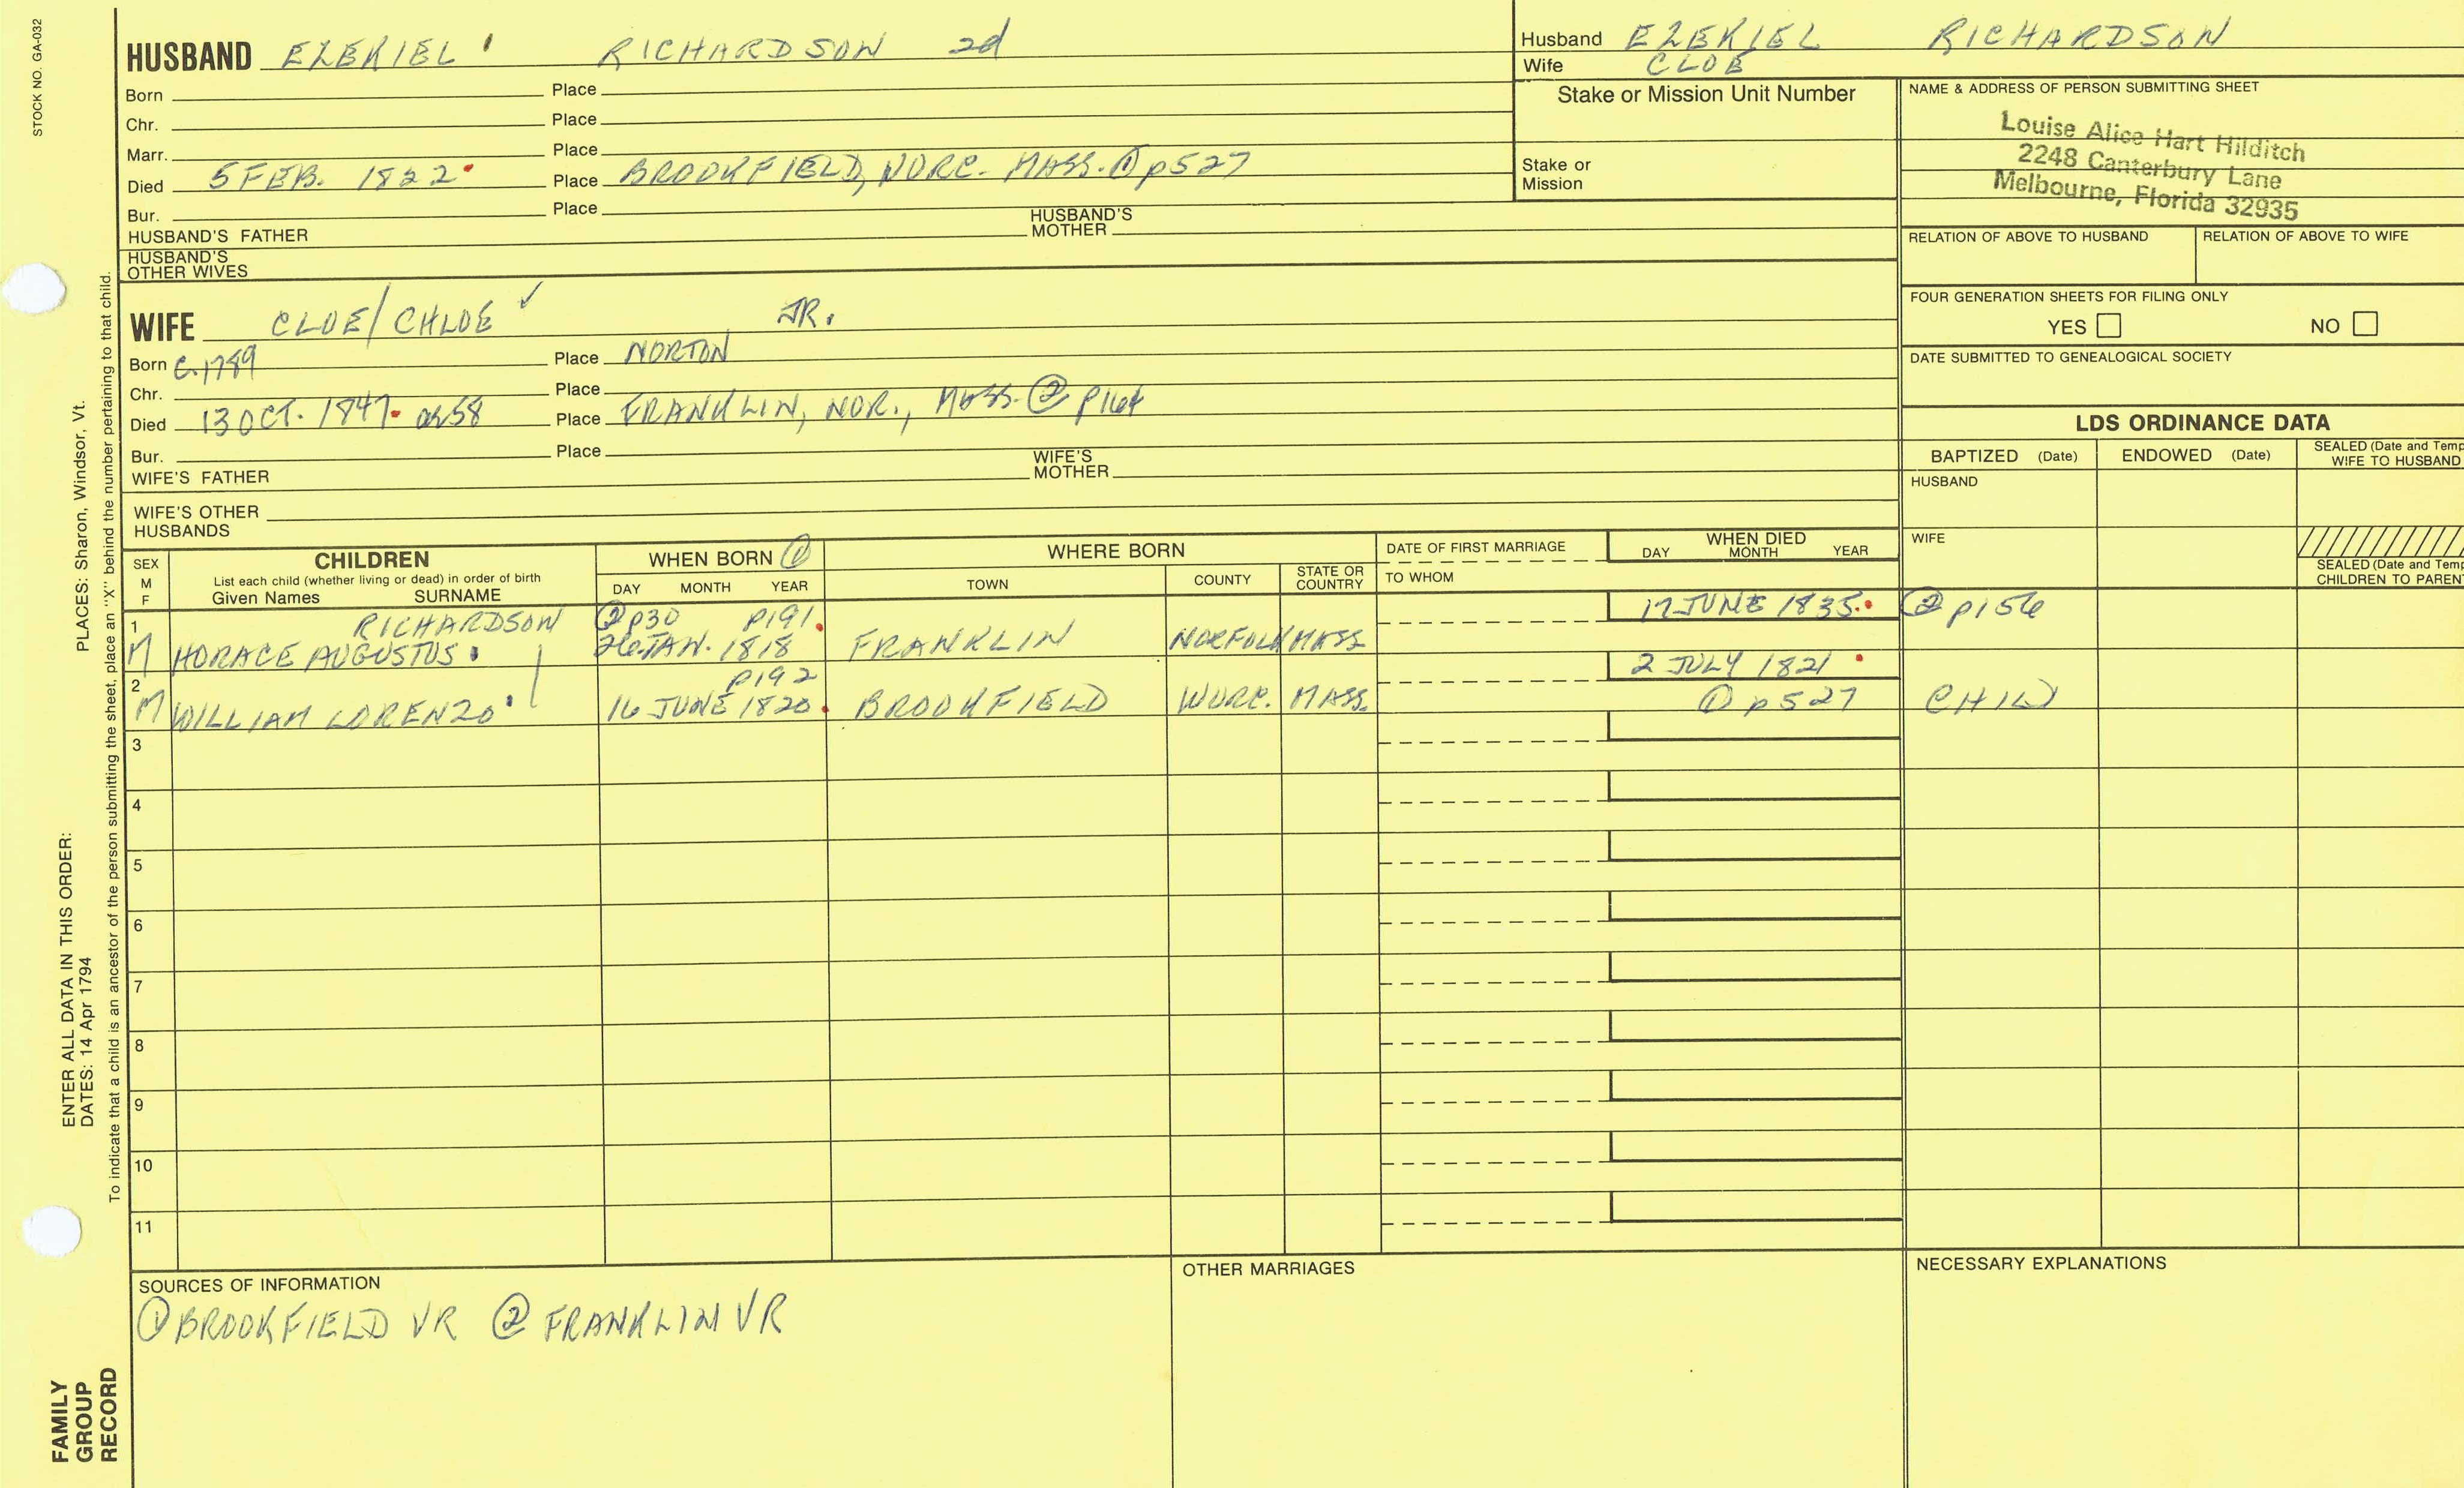 STOCK NO. GA-032
HUSBAND EZEKIEL RICHARDSON 2d
Born Place
Chr. Place
Marr. Place
Died 5 FEB. 1822 Place BROOKFIELD, WORC. MASS. ① p527
Bur. Place
HUSBAND'S FATHER HUSBAND'S MOTHER
HUSBAND'S OTHER WIVES
Husband EZEKIEL RICHARDSON
Wife CLOE
Stake or Mission Unit Number
Stake or Mission
NAME & ADDRESS OF PERSON SUBMITTING SHEET
Louise Alice Hart Hilditch
2248 Canterbury Lane
Melbourne, Florida 32935
RELATION OF ABOVE TO HUSBAND RELATION OF ABOVE TO WIFE
FOUR GENERATION SHEETS FOR FILING ONLY
YES NO
DATE SUBMITTED TO GENEALOGICAL SOCIETY
WIFE CLOE/CHLOE ✓ JR.
Born C.1789 Place NORTON
Chr. Place
Died 13 OCT. 1847 ae 58 Place FRANKLIN, NOR., MASS. ② p164
Bur. Place
WIFE'S FATHER WIFE'S MOTHER
WIFE'S OTHER HUSBANDS
LDS ORDINANCE DATA
BAPTIZED (Date) ENDOWED (Date) SEALED (Date and Temp
WIFE TO HUSBAND
HUSBAND
WIFE
SEALED (Date and Temp
CHILDREN TO PAREN
SEX M F
CHILDREN
List each child (whether living or dead) in order of birth
Given Names SURNAME
WHEN BORN ①
DAY MONTH YEAR
WHERE BORN
TOWN COUNTY STATE OR COUNTRY
DATE OF FIRST MARRIAGE
TO WHOM
WHEN DIED
DAY MONTH YEAR
1 RICHARDSON ② p30 p191 17 JUNE 1835 ② p156
M HORACE AUGUSTUS 26 JAN. 1818 FRANKLIN NORFOLK MASS
2 p192 2 JULY 1821
M WILLIAM LORENZO 16 JUNE 1820 BROOKFIELD WORC. MASS. ① p527 CHILD
3
4
5
6
7
8
9
10
11
SOURCES OF INFORMATION
① BROOKFIELD VR ② FRANKLIN VR
OTHER MARRIAGES
NECESSARY EXPLANATIONS
ENTER ALL DATA IN THIS ORDER:
DATES: 14 Apr 1794 PLACES: Sharon, Windsor, Vt.
To indicate that a child is an ancestor of the person submitting the sheet, place an "X" behind the number pertaining to that child.
FAMILY
GROUP
RECORD